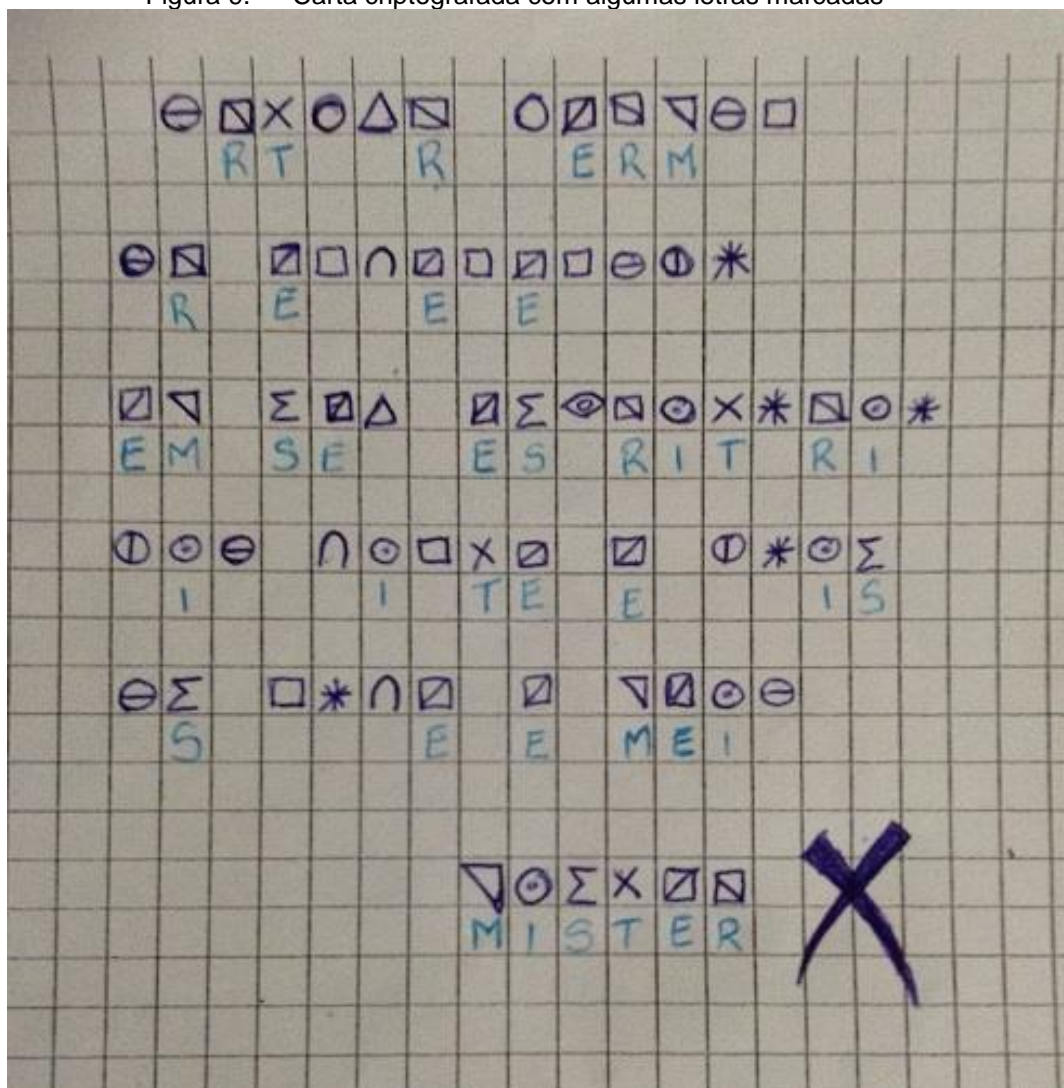 Figura 6. Carta criptografada com algumas letras marcadas
R T R E R M
R E E E
E M S E E S R I T R I
I I T E E I S
S E E M E I
M I S T E R
X